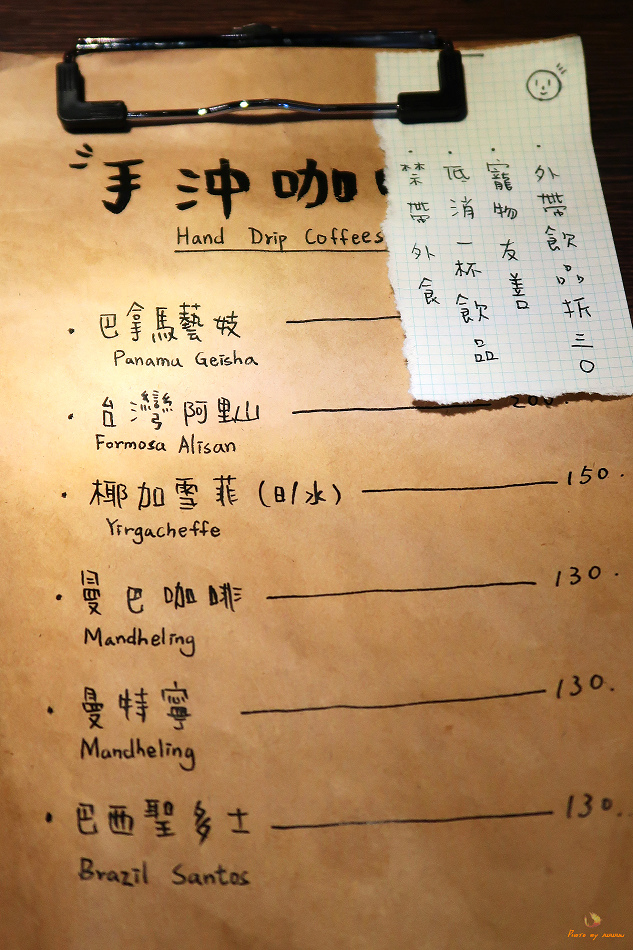 手沖咖
Hand Drip Coffees
外帶飲品折三〇
寵物友善
低消一杯飲品
禁帶外食
巴拿馬藝妓
Panama Geisha
台灣阿里山 200.
Formosa Alisan
椰加雪菲(日/水) 150.
Yirgacheffe
曼巴咖啡 130.
Mandheling
曼特寧 130.
Mandheling
巴西聖多士 130.
Brazil Santos
Photo by